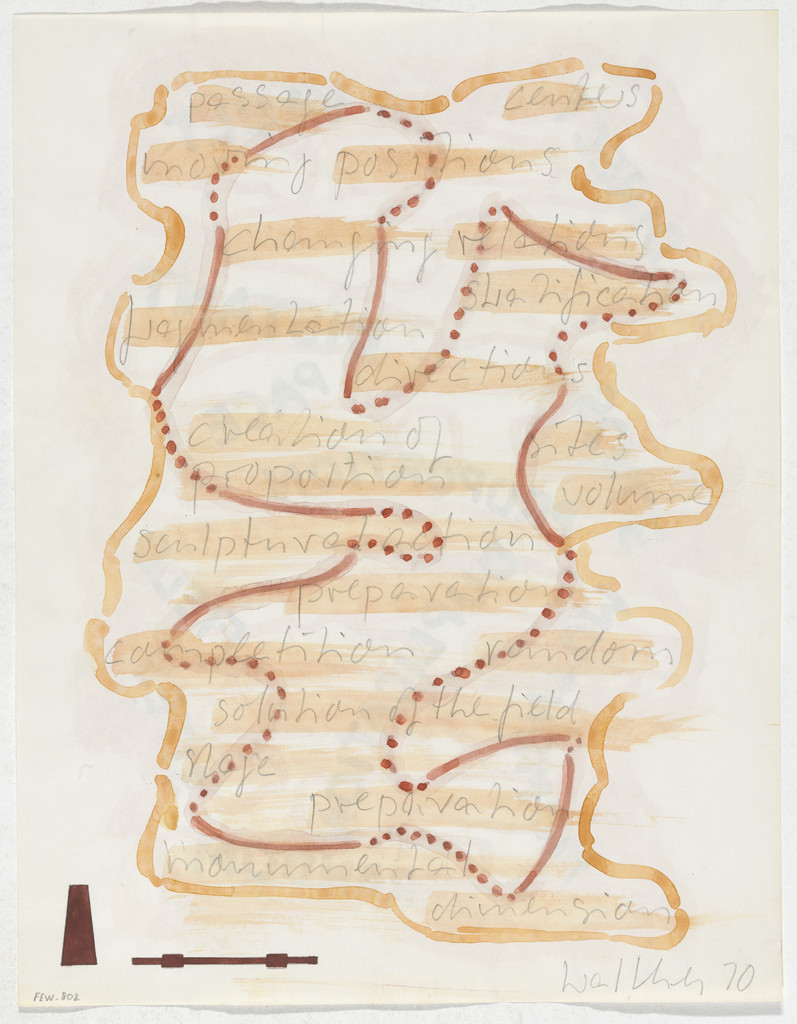 passage centers
moving positions
changing relations
stratification
formentation
directions
creation of sites
proposition
volume
sculpture/action
preparation
completition random
solution of the field
stage
preparation
monumental
dimension
Walther 70
FEW-802